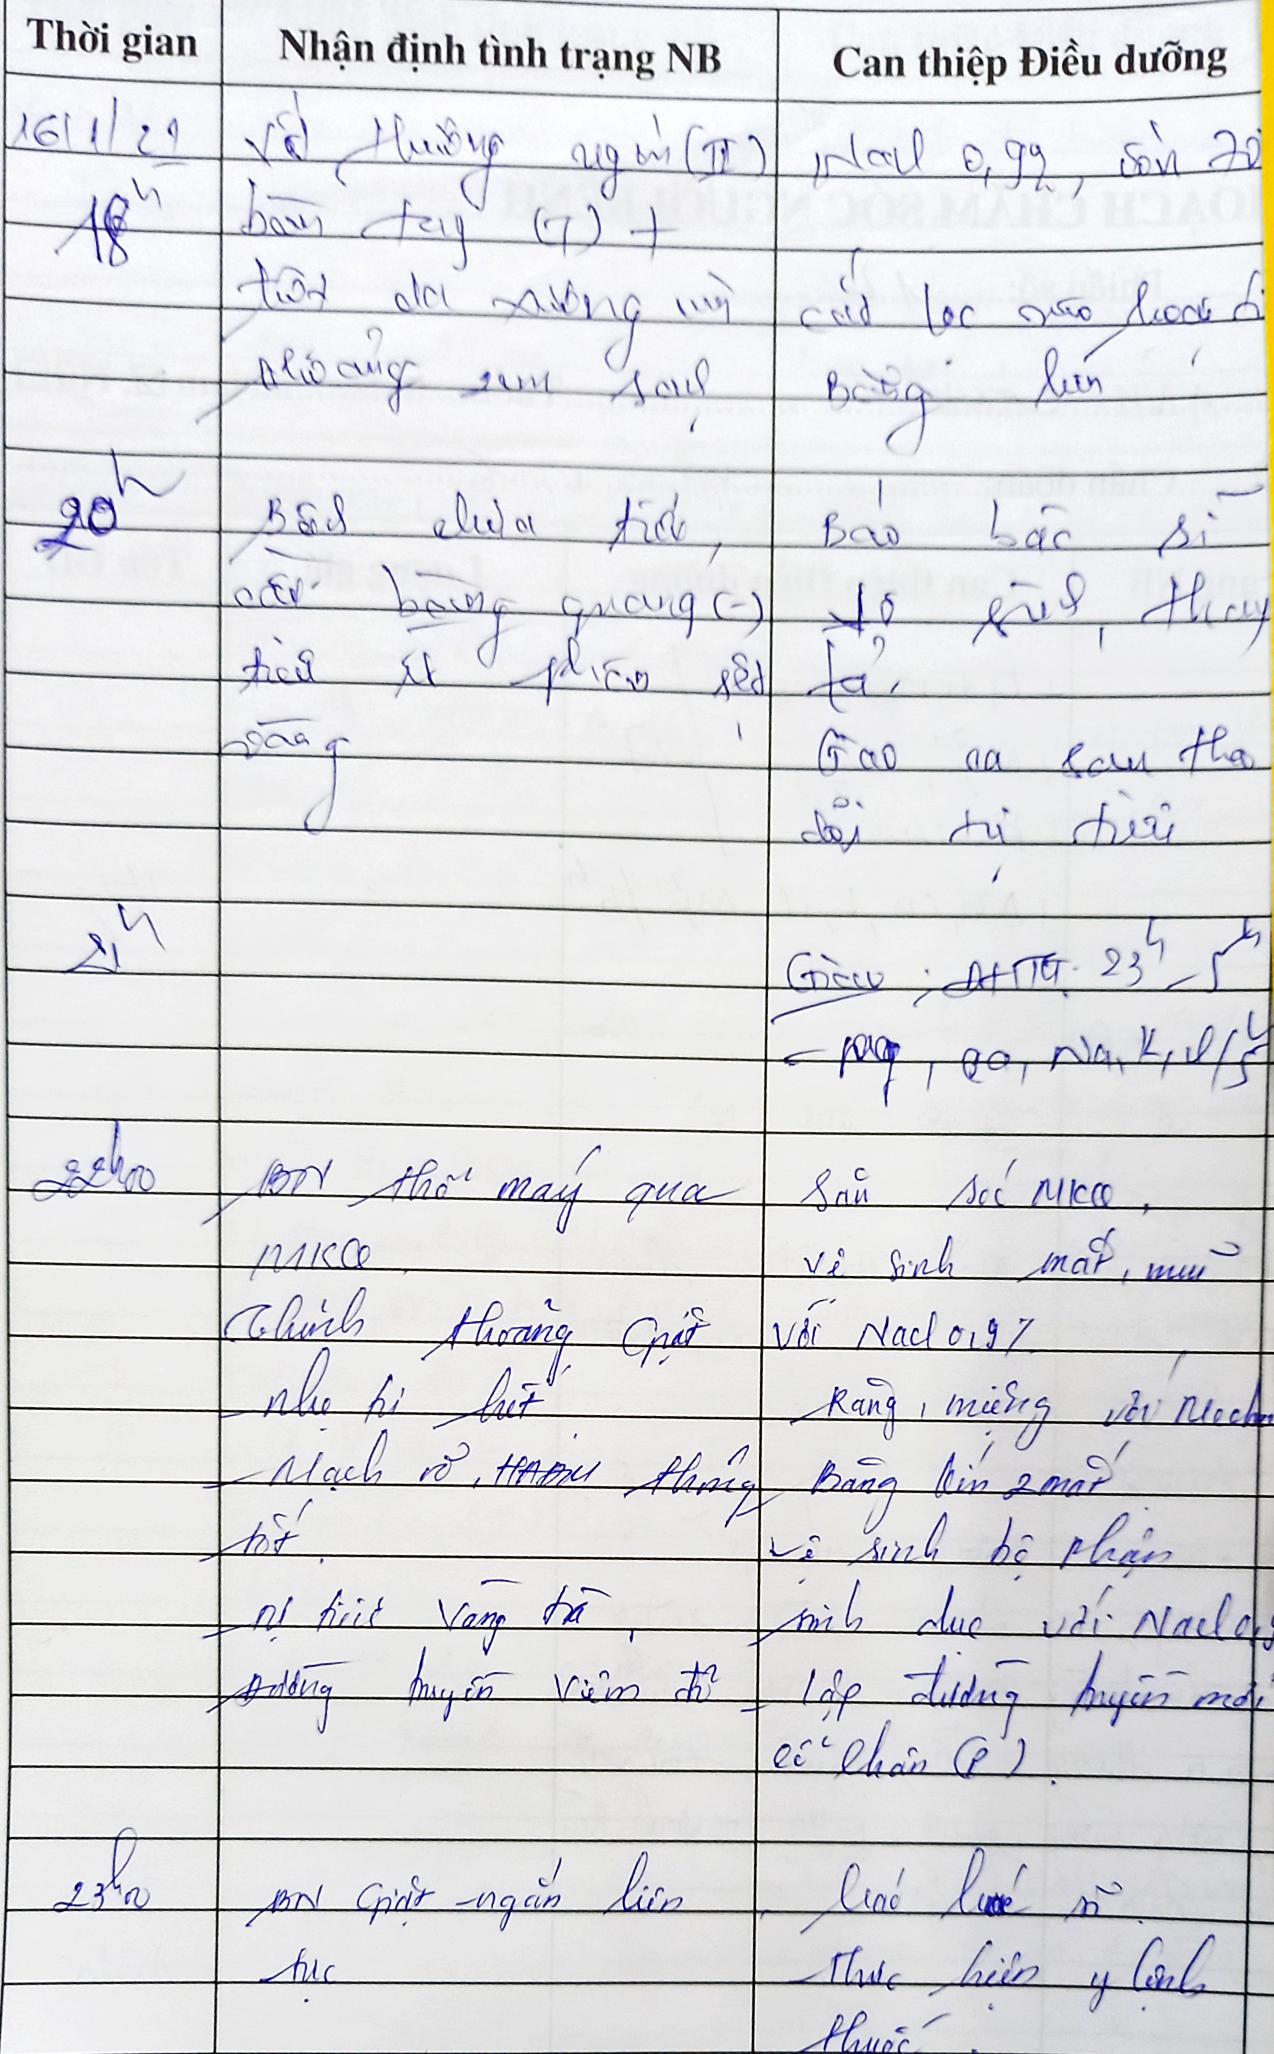 Thời gian
Nhận định tình trạng NB
Can thiệp Điều dưỡng
16/1/21
18h
Vết thương ngón (II)
bàn tay (T) +
xương
khoảng 2cm
NaCl 0,9%, cồn 70
cắt lọc
Băng kín
20h
Bệnh chưa tiểu,
cầu bàng quang (-)
tiểu ít
vàng
Báo bác sĩ
thay
tả.
Giao ca sau theo
dõi tiểu
21h
23h - 5h
Na, K, Cl/5h
22h00
BN thở máy qua
MKQ
Thỉnh thoảng Giật
nhẹ khi hút
- Mạch rõ, HAĐM thông
tốt.
NT tiểu vàng trà
Đường truyền viêm đỏ
Săn sóc MKQ,
Vệ sinh mắt, mũi
với NaCl 0,9%
Răng, miệng với
Băng kín 2 mắt
Vệ sinh bộ phận
sinh dục với NaCl 0,9
- Lập đường truyền mới
cổ chân (P)
23h00
BN Giật ngắn liên
tục
Báo bác sĩ
Thực hiện y lệnh
thuốc